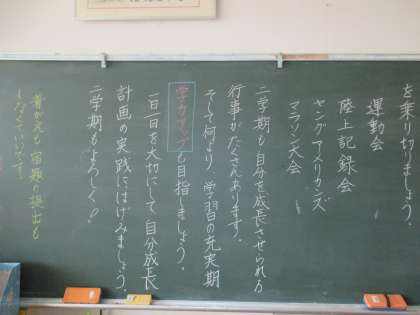 を乗り切りましょう。
運動会
陸上記録会
ヤングアメリカンズ
マラソン大会
二学期も自分を成長させられる
行事がたくさんあります。
そして何より、学習の充実期
学力アップも目指しましょう。
一日一日を大切にして自分成長
計画の実践にはげみましょう。
二学期もよろしく!
着がえも宿題の提出も
しなくていいです。